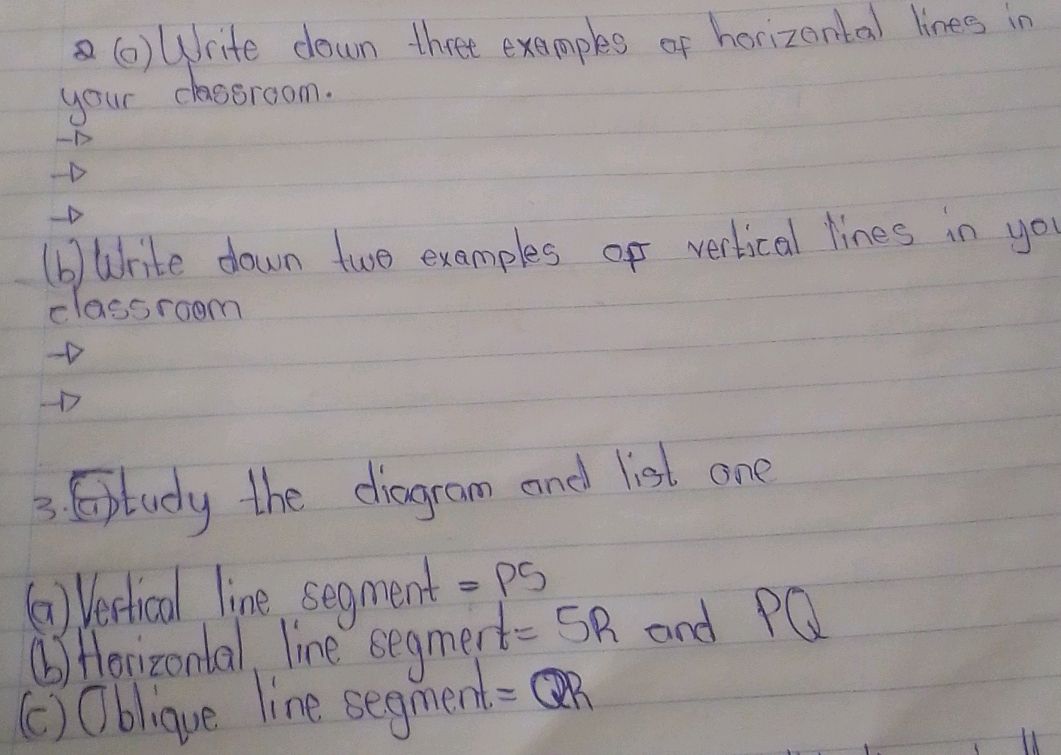 2 (a) Write down three examples of horizontal lines in
your classroom.
→
→
→
(b) Write down two examples of vertical lines in you
classroom
→
→
3. Study the diagram and list one
(a) Vertical line segment = PS
(b) Horizontal line segment = SR and PQ
(c) Oblique line segment = QR